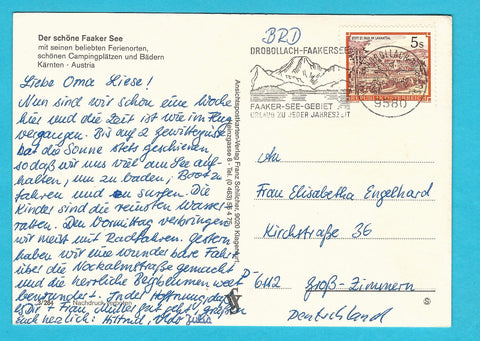 Der schöne Faaker See
mit seinen beliebten Ferienorten,
schönen Campingplätzen und Bädern
Kärnten · Austria
Liebe Oma Liese!
Nun sind wir schon eine Woche
hier und die Zeit ist wie im Flug
vergangen. Bis auf 2 Gewittergüsse
hat die Sonne stets geschienen
sodaß wir uns viel am See auf-
halten, um zu baden, Boot zu
fahren und zu surfen. Die
Kinder sind die reinsten Wasser-
ratten. Den Vormittag verbringen
wir meist mit Radfahren. Gestern
haben wir eine wunderbare Fahrt
über die Nockalmstraße gemacht
und die herrliche Bergblumenwelt
bewundert. In der Hoffnung, daß
es Dir + Frau Müller gut geht, grüßen
Euch herzlich: Hiltrud, Udo Julia
Nachdruck verboten
Ansichtspostkarten-Verlag Franz Schilcher, 9020 Klagenfurt
BRD
DROBOLLACH-FAAKERSEE
FAAKER-SEE-GEBIET
URLAUB ZU JEDER JAHRESZEIT
9580
5s
STIFT ST. PAUL IM LAVANTTAL
REPUBLIK ÖSTERREICH
An
Frau Elisabetha Engelhard
Kirchstraße 36
D-6112 Groß-Zimmern
Deutschland
S